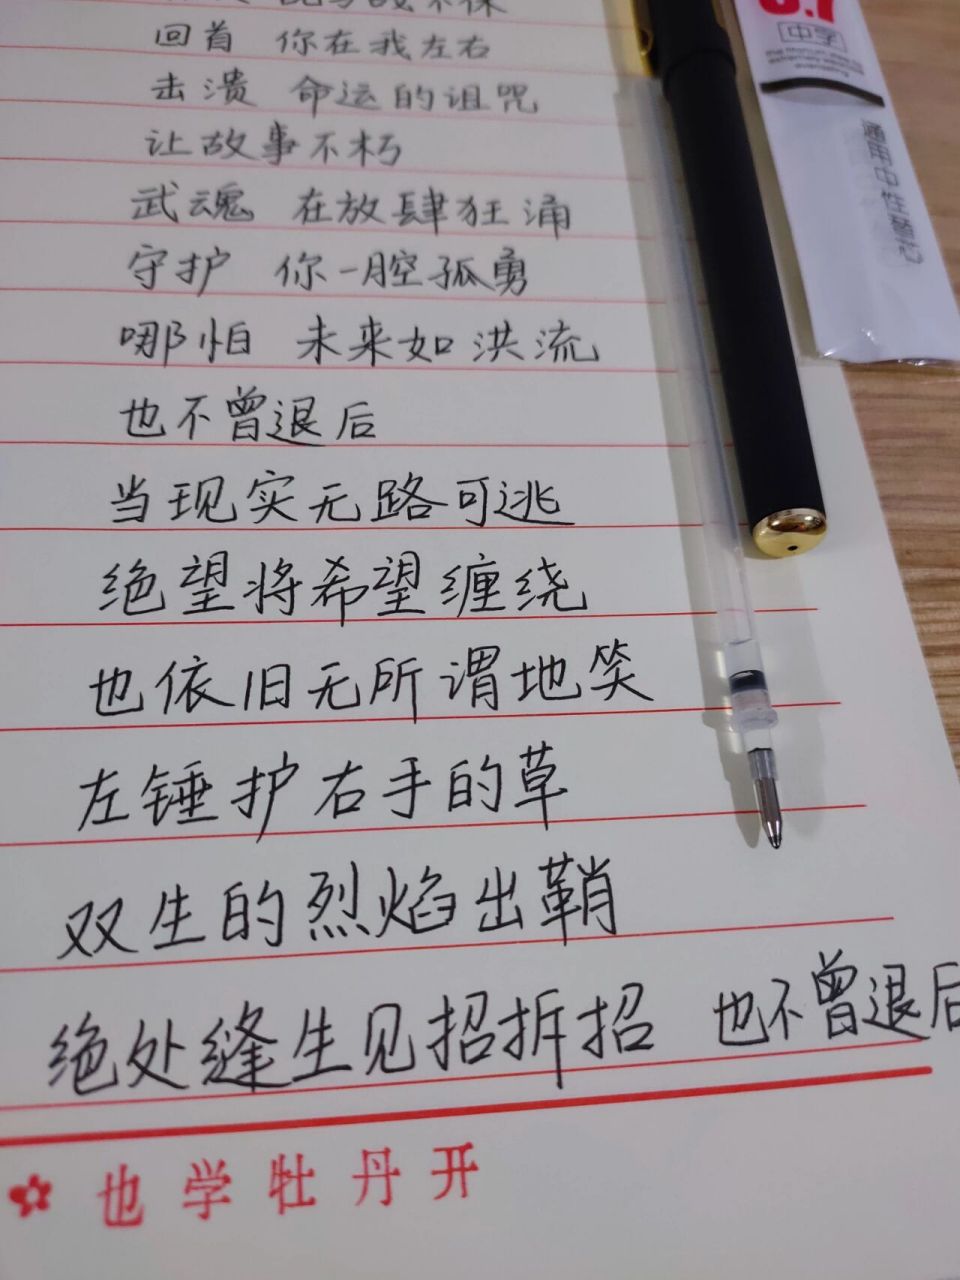 回首 你在我左右
击溃 命运的诅咒
让故事不朽
武魂 在放肆狂涌
守护 你一腔孤勇
哪怕 未来如洪流
也不曾退后
当现实无路可逃
绝望将希望缠绕
也依旧无所谓地笑
左锤护右手的草
双生的烈焰出鞘
绝处缝生见招拆招 也不曾退后
也学牡丹开
0.7
中字
通用中性替芯